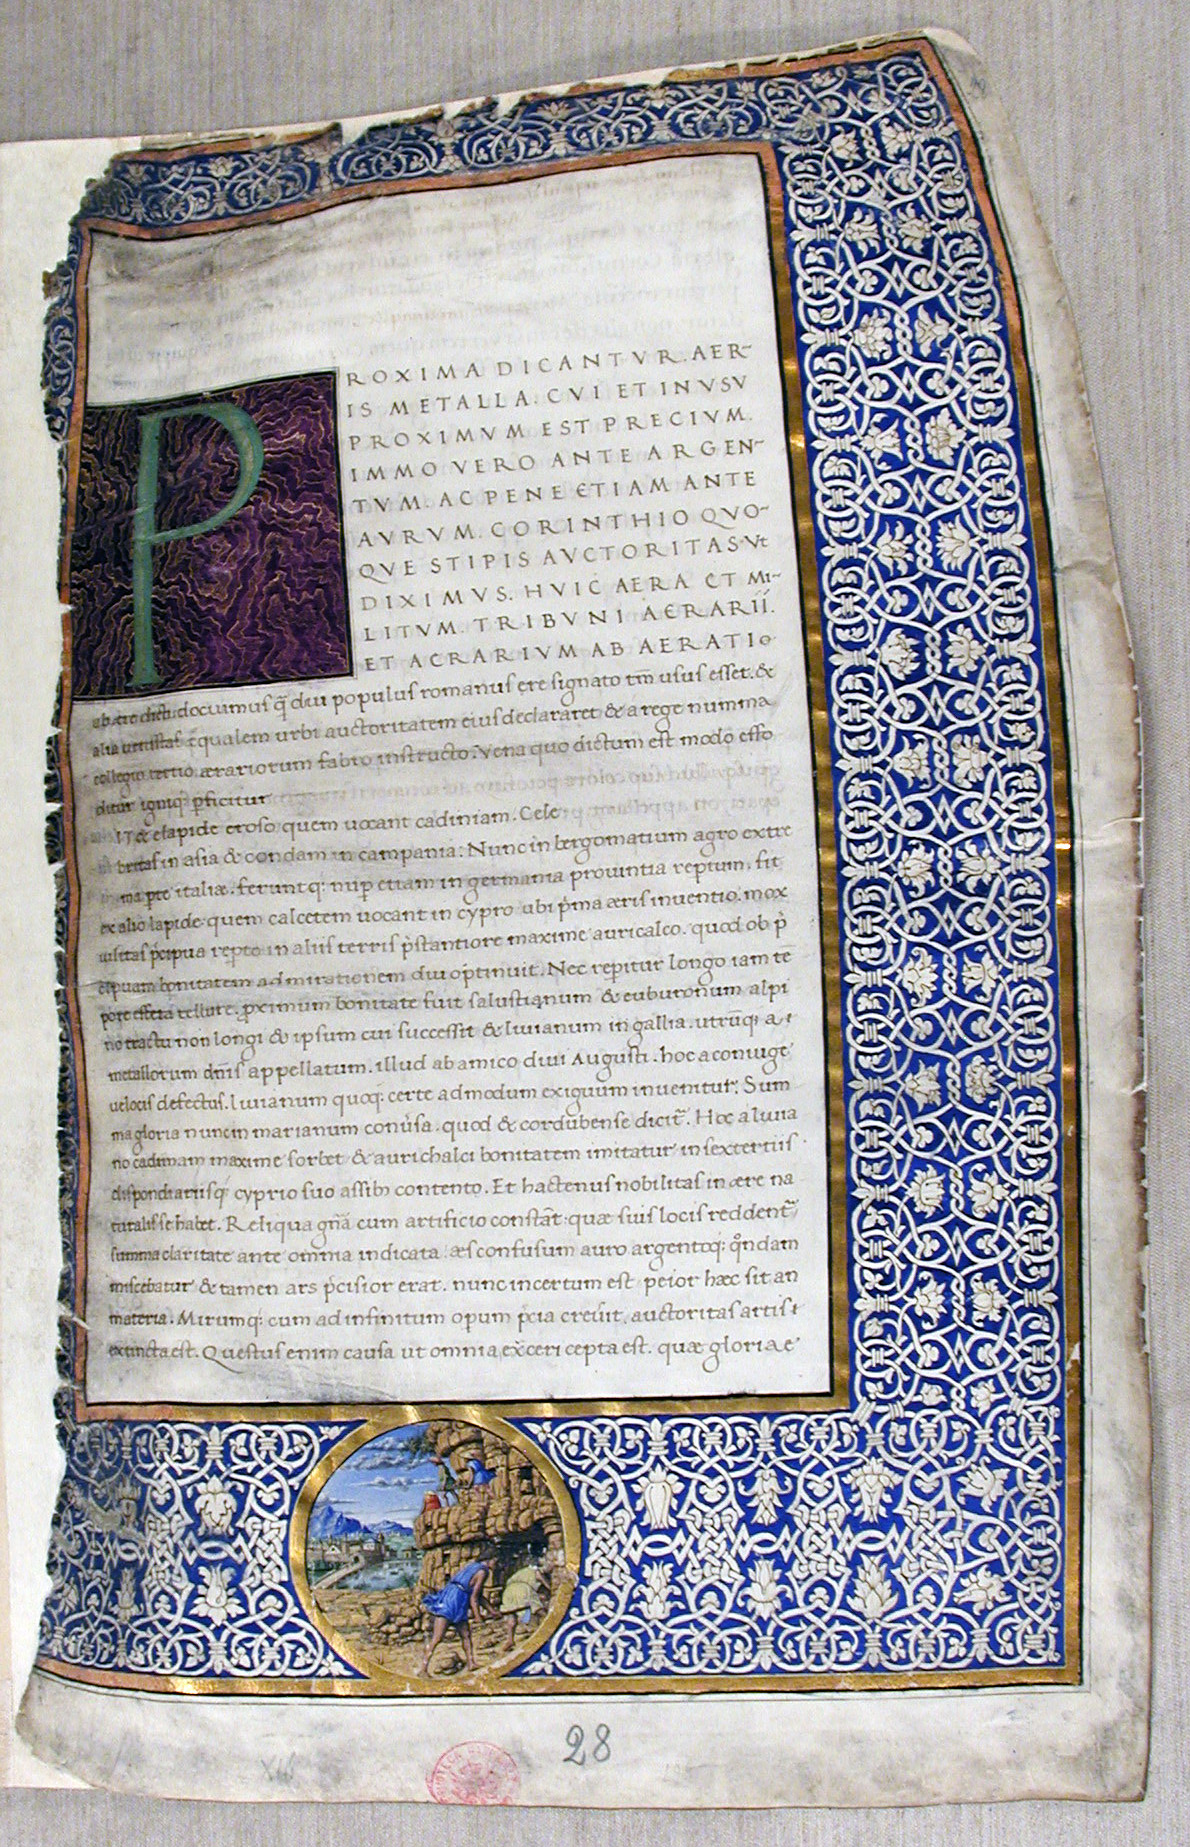 P
ROXIMA DICANTVR. AER-
IS METALLA. CVI ET IN VSV
PROXIMVM EST PRECIVM.
IMMO VERO ANTE ARGEN-
TVM. AC PENE ETIAM ANTE
AVRVM. CORINTHIO QVO-
QVE STIPIS AVCTORITAS. Vt
DIXIMVS. HVIC AERA ET MI-
LITVM. TRIBVNI AERARII.
ET AERARIVM AB AERATIO
docuimus q̄ diu populus romanus ere signato tm̄ usus esset. &
alia uetustas ęqualem urbi auctoritatem eius declararet & a rege numma
collegio tertio ærariorum fabro instructo. Vena quo dictum est modo effo
ditur igniq; pficitur
& e lapide eroso quem uocant cadiniam. Cele
britas in asia & condam in campania: Nunc in bergomatium agro extre
ma pte italiæ. feruntq; nup etiam in germania prouintia reptum. fit
ex alio lapide quem calcetem uocant in cypro ubi p̓ma æris inuentio. mox
uilitas p̓cipua repto in aliis terris p̓stantiore maxime auricalco. quod ob p̓
cipuam bonitatem admirationem diu optinuit. Nec repitur longo iam tē
pore effeta tellure. proximum bonitate fuit salustianum & euburonum alpi
no tractu non longi & ipsum cui successit & liuianum in gallia. utrūq; a
metallorum dn̄is appellatum. illud ab amico diui Augusti. hoc a coniuge
uelocis defectus. liuianum quoq; certe admodum exiguum inuenitur. Sum
ma gloria nunc in marianum conūsa. quod & cordubense dicit̄. Hoc a liuia
no cadimam maxime sorbet & aurichalci bonitatem imitatur in sextertiis
dispondiariisq; cyprio suo assib; contento. Et hactenus nobilitas in ære na
turalis se habet. Reliqua gn̄a cum artificio constāt: quæ suis locis reddent̄
summa claritate ante omnia indicata. æs confusum auro argentoq; qn̊dam
miscebatur & tamen ars p̓cisior erat. nunc incertum est peior hæc sit an
materia. Mirumq; cum ad infinitum opum p̓cia creuīt. auctoritas artis
extincta est. Questus enim causa ut omnia exceri cepta est. quæ gloriae
28